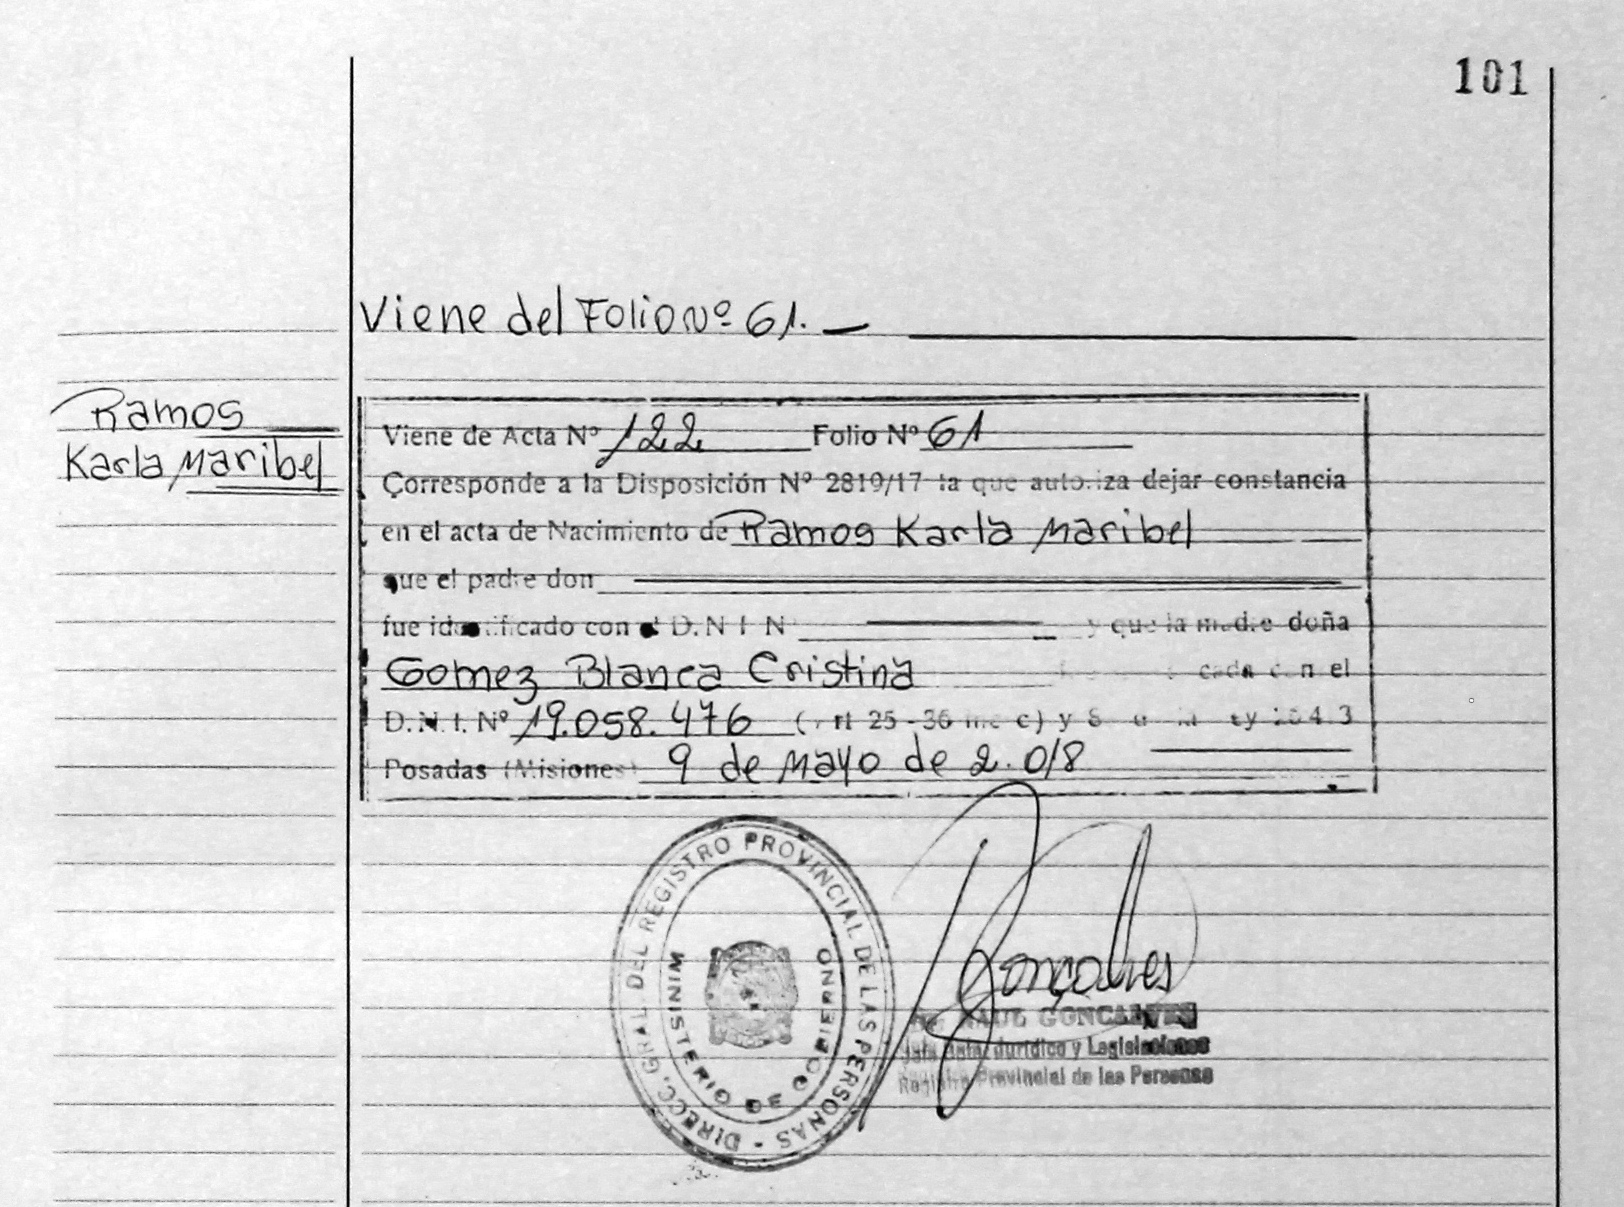 101
Viene del Folio Nº 61. —
Ramos
Karla Maribel
Viene de Acta Nº 122 Folio Nº 61
Corresponde a la Disposición Nº 2819/17 la que autoriza dejar constancia
en el acta de Nacimiento de Ramos Karla Maribel
que el padre don
fue identificado con el D.N.I. N y que la madre doña
Gomez Blanca Cristina cada con el
D.N.I. Nº 19.058.476 ( 25-36 c) y
Posadas (Misiones) 9 de Mayo de 2.018
DIRECC. GRAL. DEL REGISTRO PROVINCIAL DE LAS PERSONAS -
MINISTERIO DE GOBIERNO
Gonçalves
RAUL GONCALVES
Jurídico y Legislaciones
Registro Provincial de las Personas